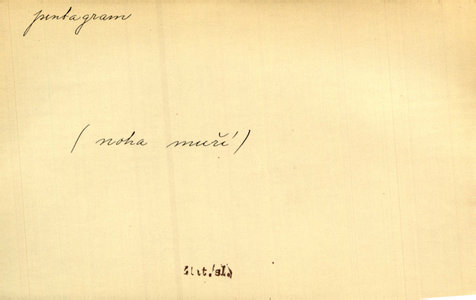 pentagram
(noha muří)